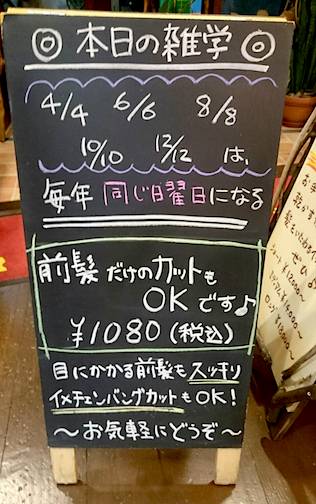 ◎本日の雑学◎
4/4 6/6 8/8
10/10 12/12 は、
毎年 同じ曜日になる
前髪だけのカットも
OKです♪
¥1080(税込)
目にかかる前髪もスッキリ
イメチェンバングカットもOK!
〜お気軽にどうぞ〜